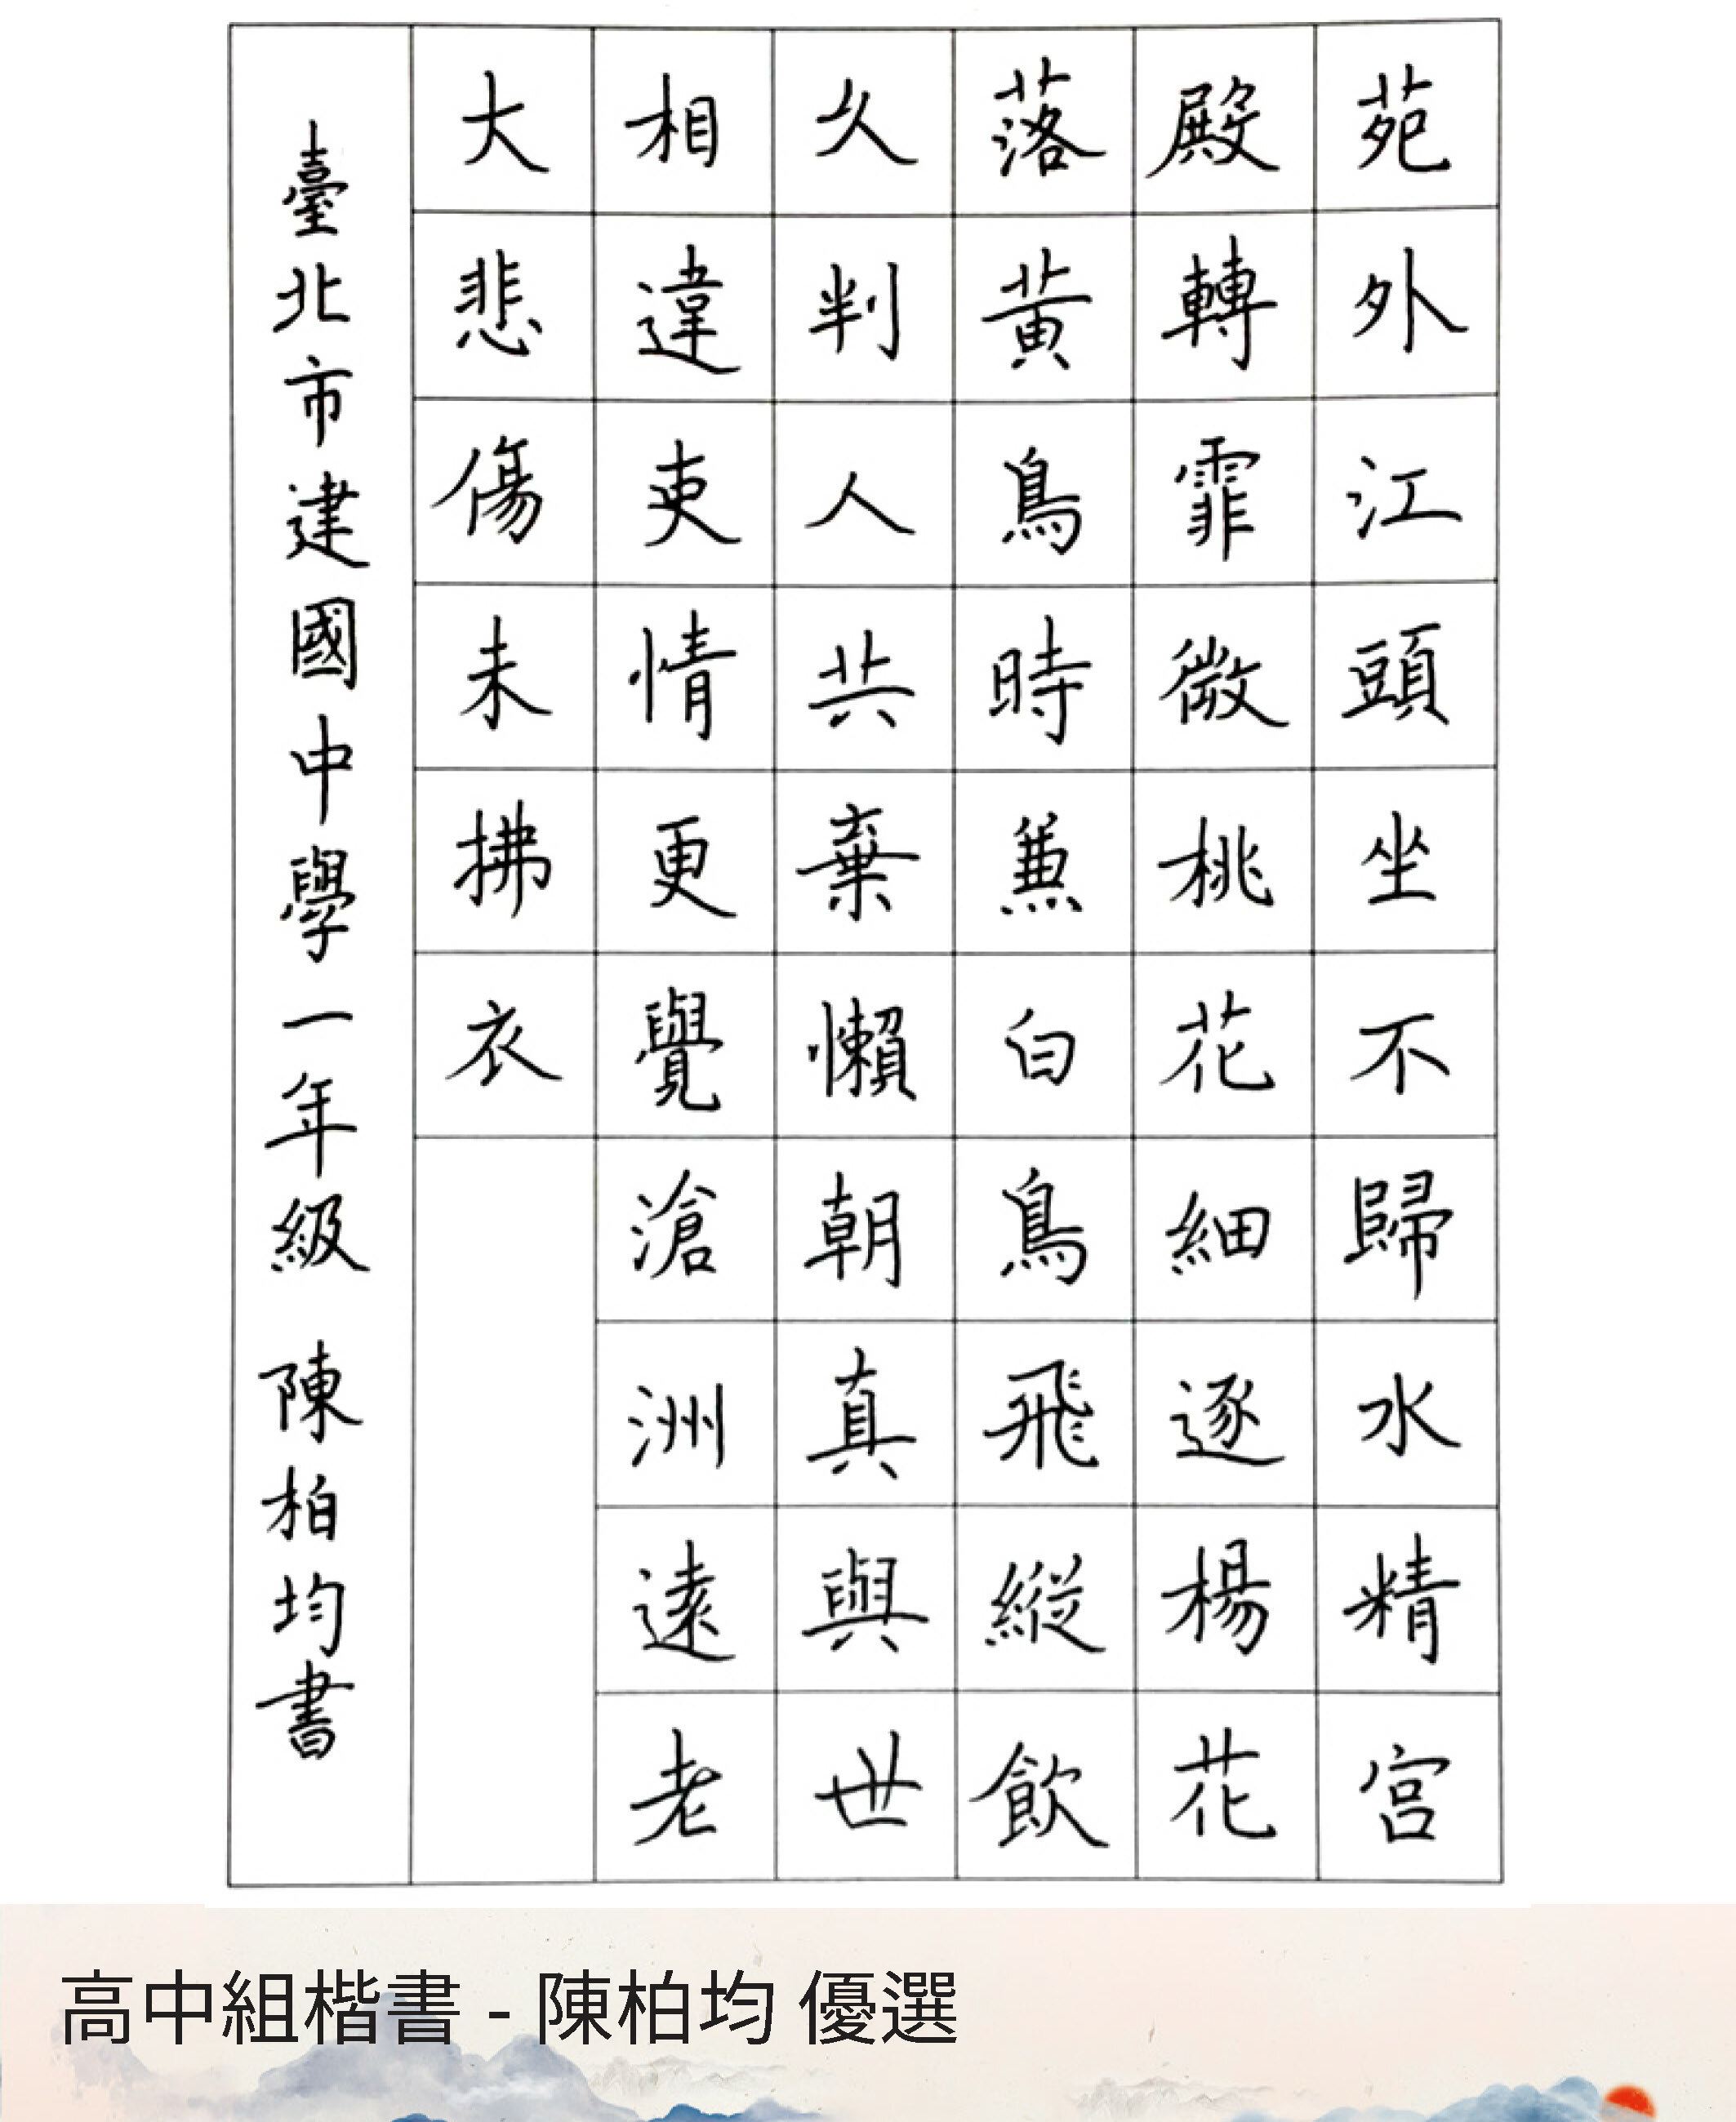 苑外江頭坐不歸水精宮
殿轉霏微桃花細逐楊花
落黃鳥時兼白鳥飛縱飲
久判人共棄懶朝真與世
相違吏情更覺滄洲遠老
大悲傷未拂衣
臺北市建國中學一年級 陳柏均書
高中組楷書 - 陳柏均 優選